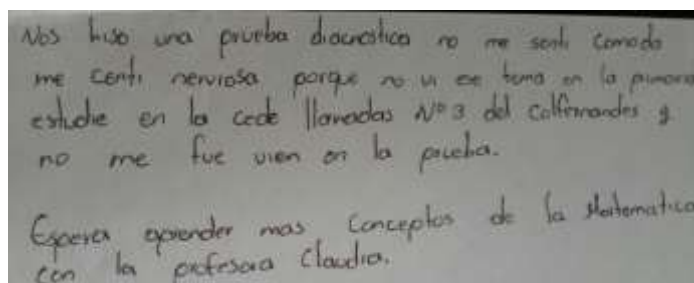 Nos hiso una prueba diacnostica no me senti comoda
me centi nerviosa porque no vi ese tema en la primaria
estudie en la cede llanadas Nº 3 del Colfernandes y
no me fue vien en la prueba.
Espera aprender mas conceptos de la Matematica
con la profesora Claudia.